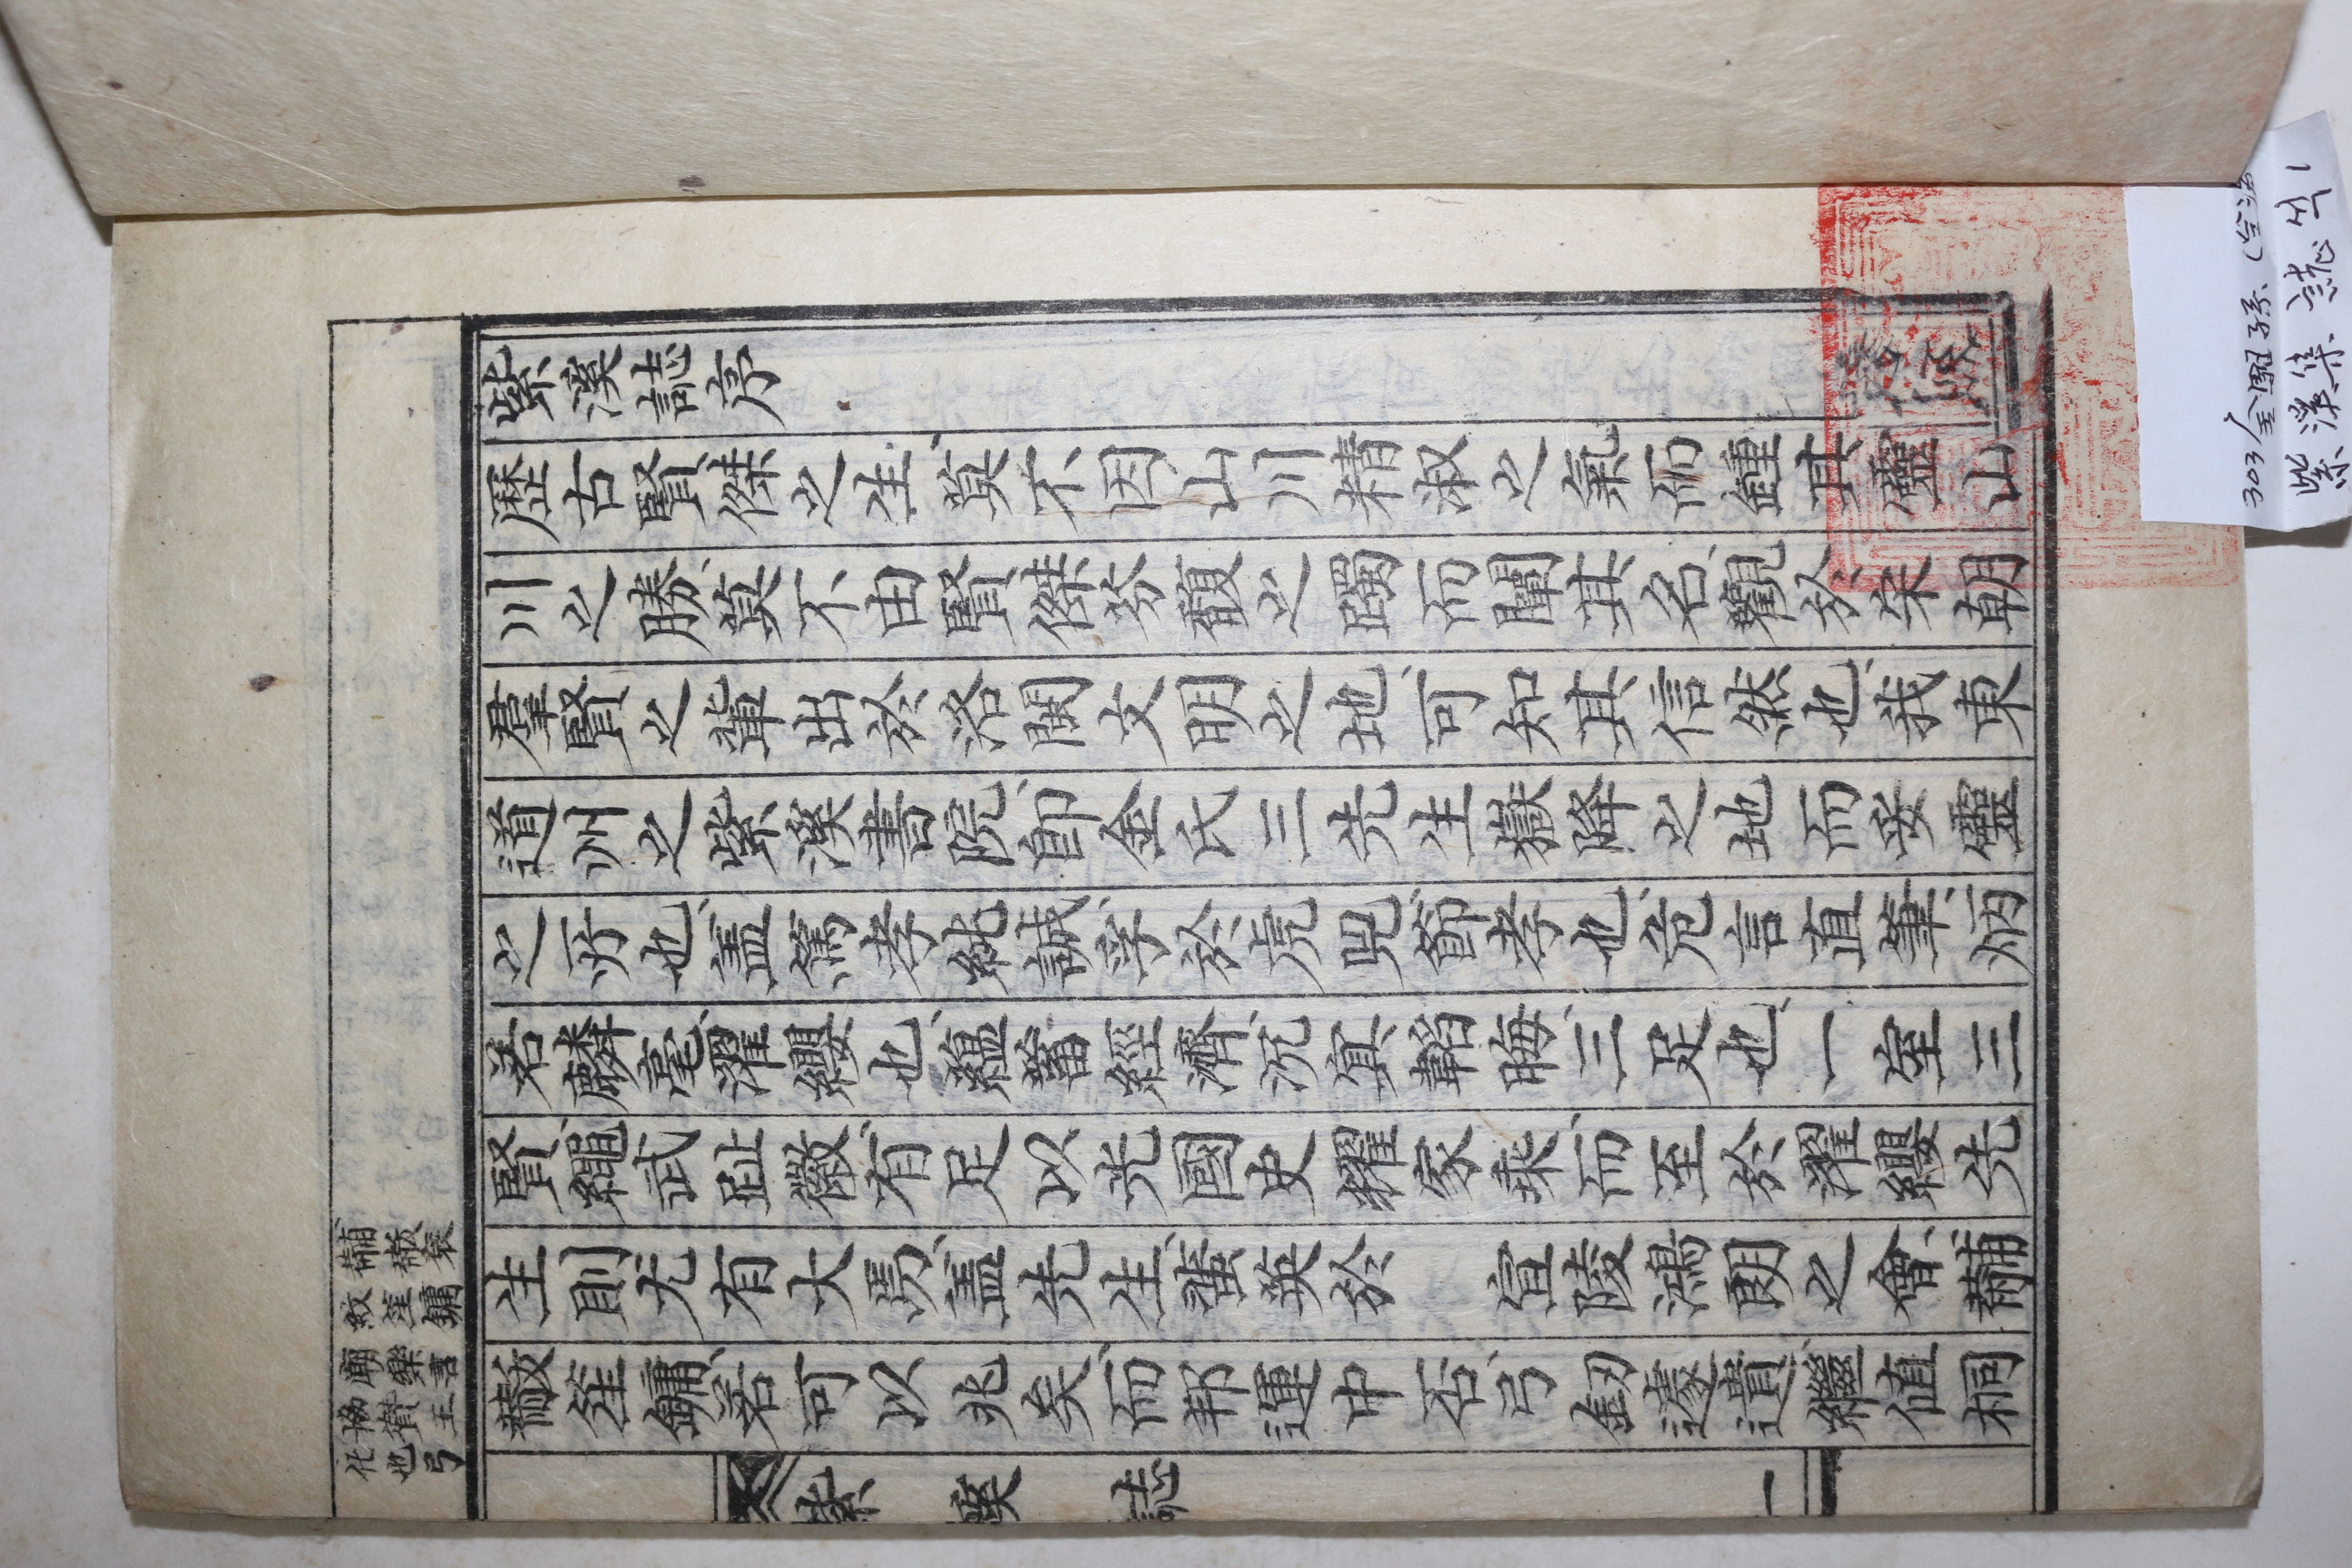 紫溪誌序
歷古賢傑之生莫不因山川精淑之氣而鍾其靈山
川之勝莫不由賢傑芬馥之躅而闡其名觀於宋朝
羣賢之輩出於洛閩文明之地可知其信然也我東
道州之紫溪書院卽金氏三先生嶽降之地而妥靈
之所也盖篤孝純誠孚於虎兕節孝也危言直筆炳
若麟毫濯纓也蘊蓄經濟沉冥韜晦三足也一室三
賢繩武趾徽有足以光國史耀家乘而至於濯纓先
生則尤有大焉盖先生蜚英於 宣陵鴻朗之會黼
黻笙鏞若可以兆矣而邦運中否弓釼遽遺繼值桐
黼黻袞
紋笙鏞
廟樂言
協贊王
化也弓
紫溪誌
一
303 金馹孫
紫溪集 誌 석1